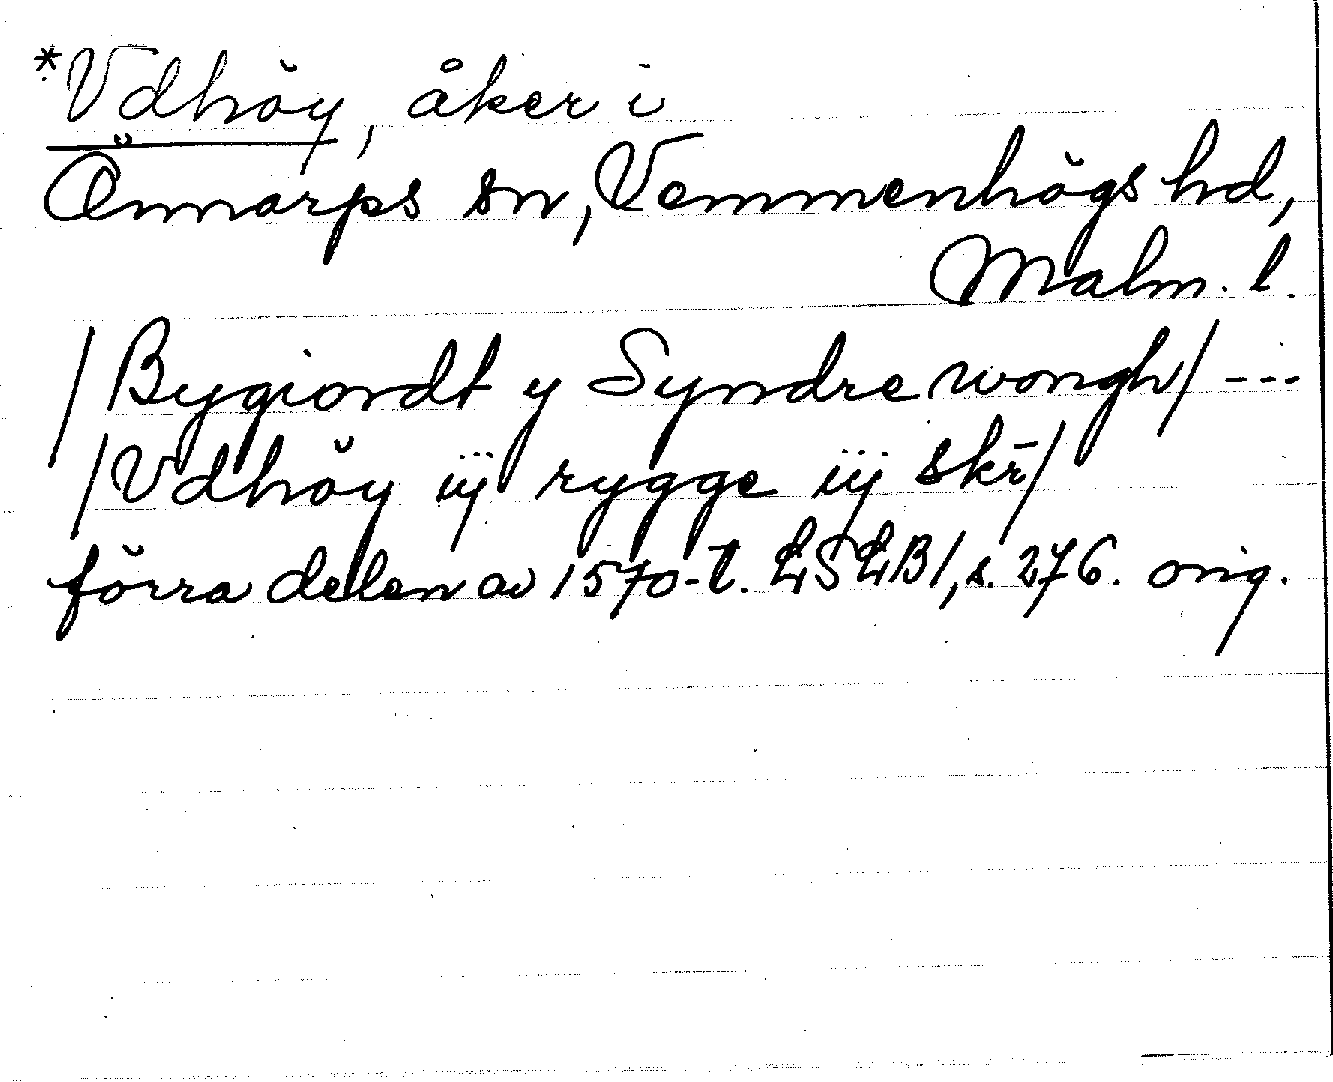 *Vdhöy, åker i
Önnarps sn, Vemmenhögs hd,
Malm. l.
/Bygiordt y Syndre wongh/ ---
/Vdhöy iij rygge iij skr̄/
förra delen av 1570-t. LSLB1, s. 276. orig.